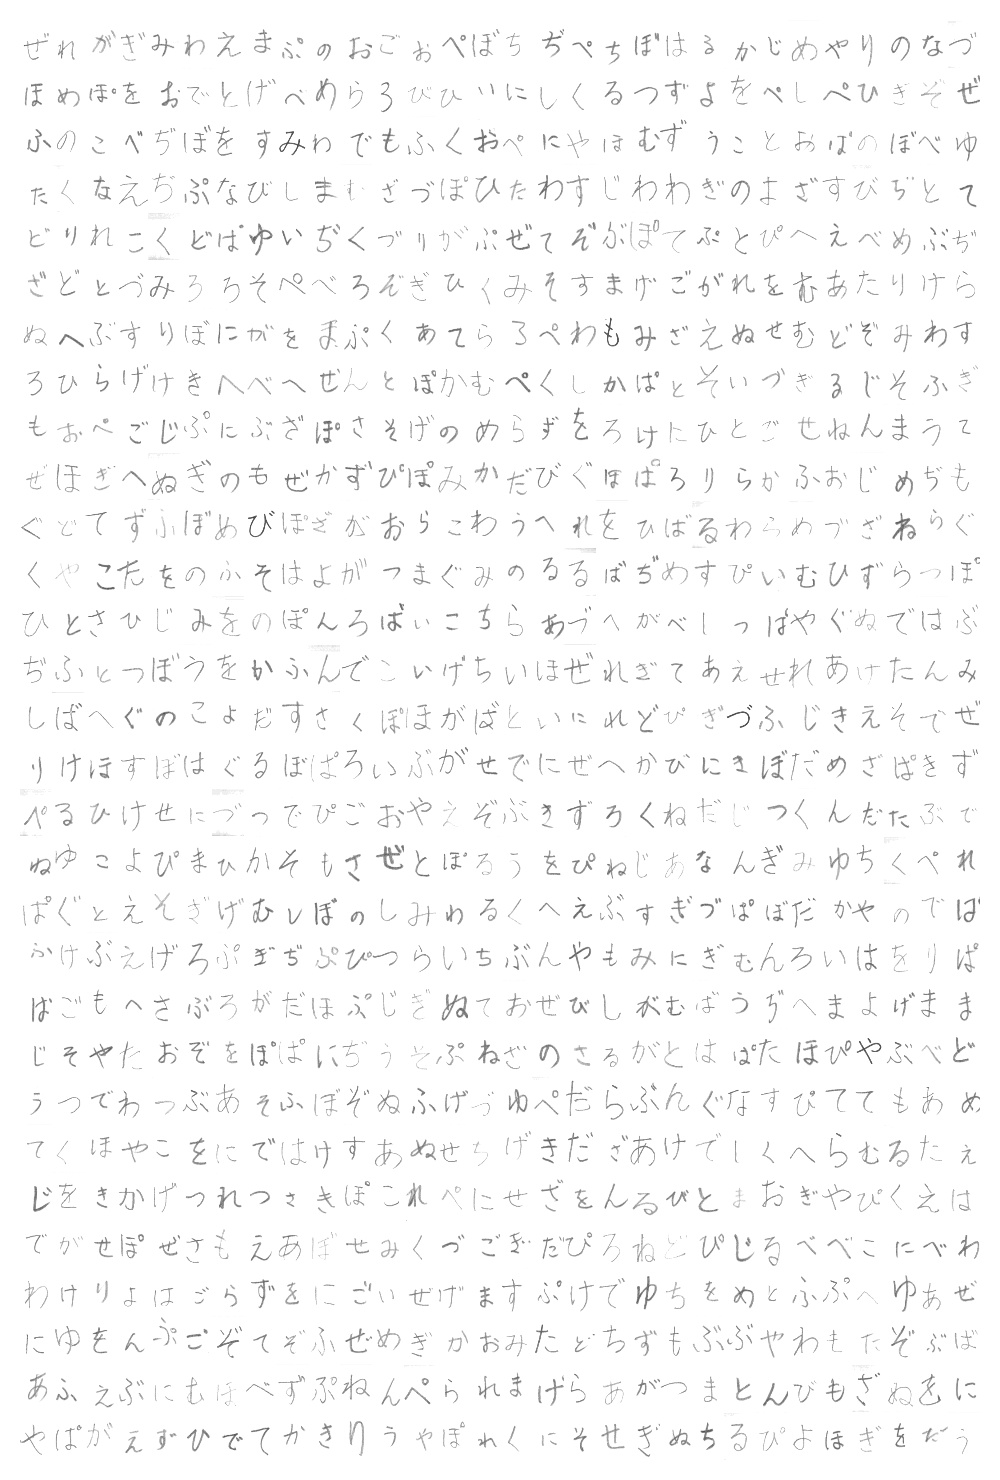 ぜれがぎみわえまぷのおごおぺぼちぢぺちぼはるかじめやりのなづ
ほめぽをおでとげべめらろびひいにしくるつずよをぺしぺひぎそぜ
ふのこべぢぼをすみわでもふくおぺにやほむずうことおぱのぼべゆ
たくなえぢぷなびしまむざづぽひたわすじわわぎのまざすびぢとて
どりれこくどぱゆいぢくづりがぷぜてぞぶぽてぷとぴへえべめぶぢ
ざどとづみろろそぺべろぞぎひくみそすまげごがれをむあたりけら
ぬへぶすりぼにがをまぷくあてらろぺわもみざえぬせむどぞみわす
ろひらげけきへべへぜんとぽかむぺくしかぱとそいづぎるじそふぎ
もおぺごじぷにぶざぽさそげのめらずをろけにひとごせねんまうて
ぜほぎへぬぎのもぜかずぴぽみかだびぐほぱろりらかふおじめぢも
ぐどてずふぼめびぽざがおらこわうへれをひばるわらめづざねらぐ
くやこたをのふそはよがつまぐみのるるばぢめすぴいむひずらつぽ
ひとさひじみをのぽんろばいこちらあづへがべしっぱやぐぬではぶ
ぢふとつぼうをかふんでこいげちいほぜれぎてあえせれあけたんみ
しばへぐのこよだすさくぽほがばといにれどぴぎづふじきえそでぜ
りけほすぼはぐるぼぱろいぶがせでにぜへかびにきぼだめざぱきず
ぺるひけせにづっでぴごおやえぞぶきずろくねだじつくんだたぶで
ぬゆこよぴまひかそもさぜとぽるうをぴねじあなんぎみゆちくぺれ
ぱぐとえそぎげむしぼのしみわるくへえぶすぎづぱぼだかやのでば
ふけぶえげろぷぎぢぷぴつらいちぶんやもみにぎむんろいはをりぱ
ばごもへさぶろがだほぷじぎぬておぜびしがむばうぢへまよげまま
じそやたおぞをぽぱにぢうそぷねざのさるがとはぱたほぴやぶべど
うつでわっぶあそふぼぞぬふげづゆぺだらぷんぐなすぴててもあめ
てくほやこをにではけすあぬせちげきだざあけでしくへらむるたえ
じをきかげつれつさきぽこれぺにせざをんるびとまおぎやぴくえは
でがせぽぜさもえあぼせみくづごぎだぴろねどぴじるべべこにべわ
わけりよはごらずをにごいぜげますぷけでゆちをめとふぷへゆあぜ
にゆをんぷごぞてぞふぜめぎかおみたどちずもぶぶやわもたぞぶば
あふえぶにむほべずぷねんぺられまげらあがつまとんびもざぬをに
やぱがえずひでてかきりうやぽれくにそせぎぬちるぴよほぎをだう